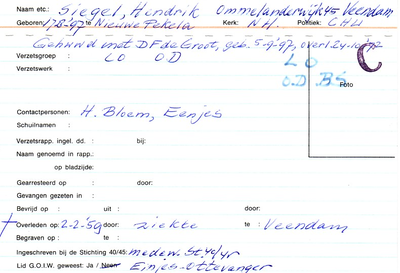 Naam etc.: Siegel, Hendrik Ommelanderwijk 45 Veendam
Geboren: 17-8-'97 te Nieuwe Pekela Kerk: N.H. Politiek: C.H.U
Gehuwd met D.F. de Groot, geb. 5-9-97, overl. 24-10-
Verzetsgroep : LO O.D
Verzetswerk :
LO
O.D BS
C
Foto
Contactpersonen: H. Bloem, Eenjes
Schuilnaam :
Verzetsrapp. ingel. dd. : bij:
Naam genoemd in rapp.:
op bladzijde:
Gearresteerd op : door:
Gevangen gezeten in :
Bevrijd op : uit : door:
Overleden op : 2-2-'59 door: ziekte te : Veendam
Begraven op : te :
Ingeschreven bij de Stichting 40/45: medew. St. 40/45
Lid G.O.I.W. geweest: Ja / Neen Einjes-Ottevanger